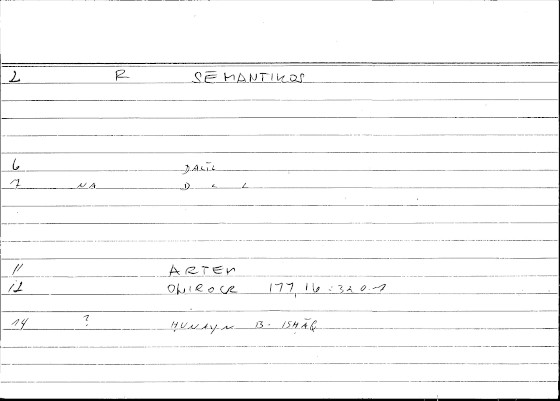 2 R SĒMANTIKOS
6 DALĪL
7 NA D L L
11 ARTEM
12 ONIROCR 177,16 : 320.7
14 ? ḤUNAYN B. ISḤĀQ